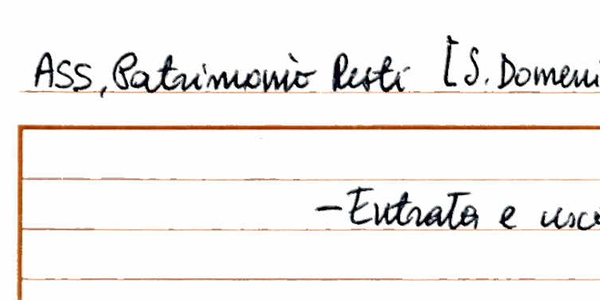 ASS, Patrimonio Resti [S. Domeni
- Entrata e usc